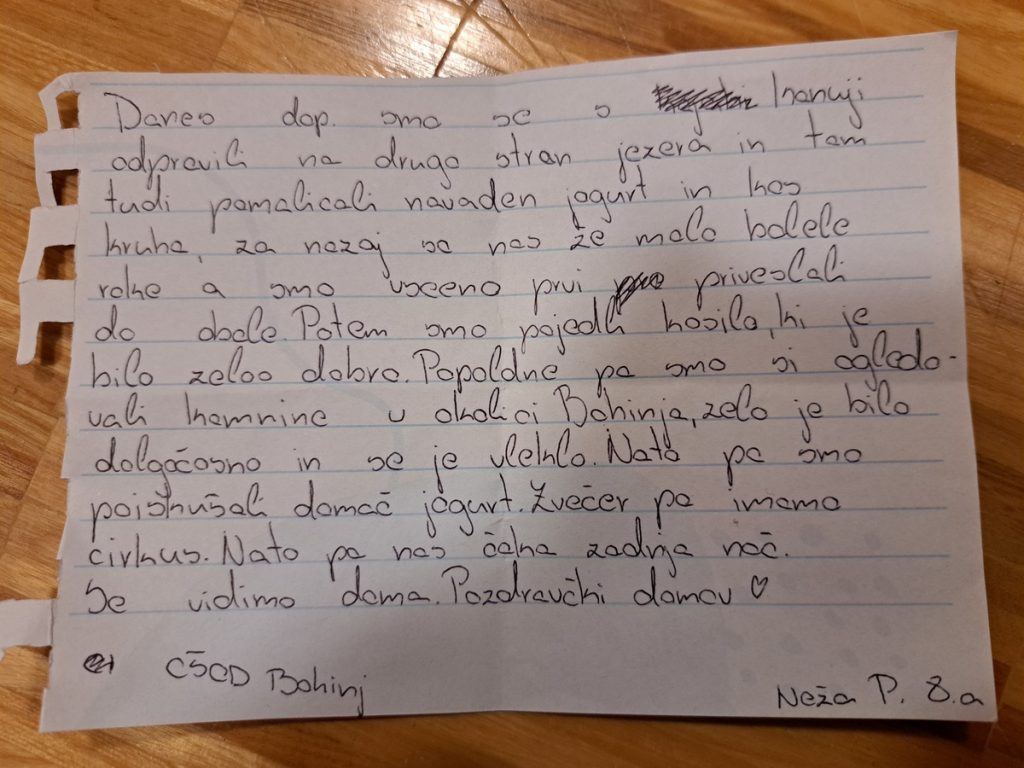 Danes dop. smo se s kanuji
odpravili na drugo stran jezera in tam
tudi pomalicali navaden jogurt in kos
kruha, za nazaj so nas že malo bolele
roke a smo vseeno prvi priveslali
do obale. Potem smo pojedli kosilo, ki je
bilo zeloo dobro. Popoldne pa smo si ogledo-
vali kamnine v okolici Bohinja, zelo je bilo
dolgočosno in se je vleklo. Nato pa smo
poiskušali domač jogurt. Zvečer pa imamo
cirkus. Nato pa nas čaka zadnja noč.
Se vidimo doma. Pozdravčki domov ♡
CŠOD Bohinj
Neža P. 8.a